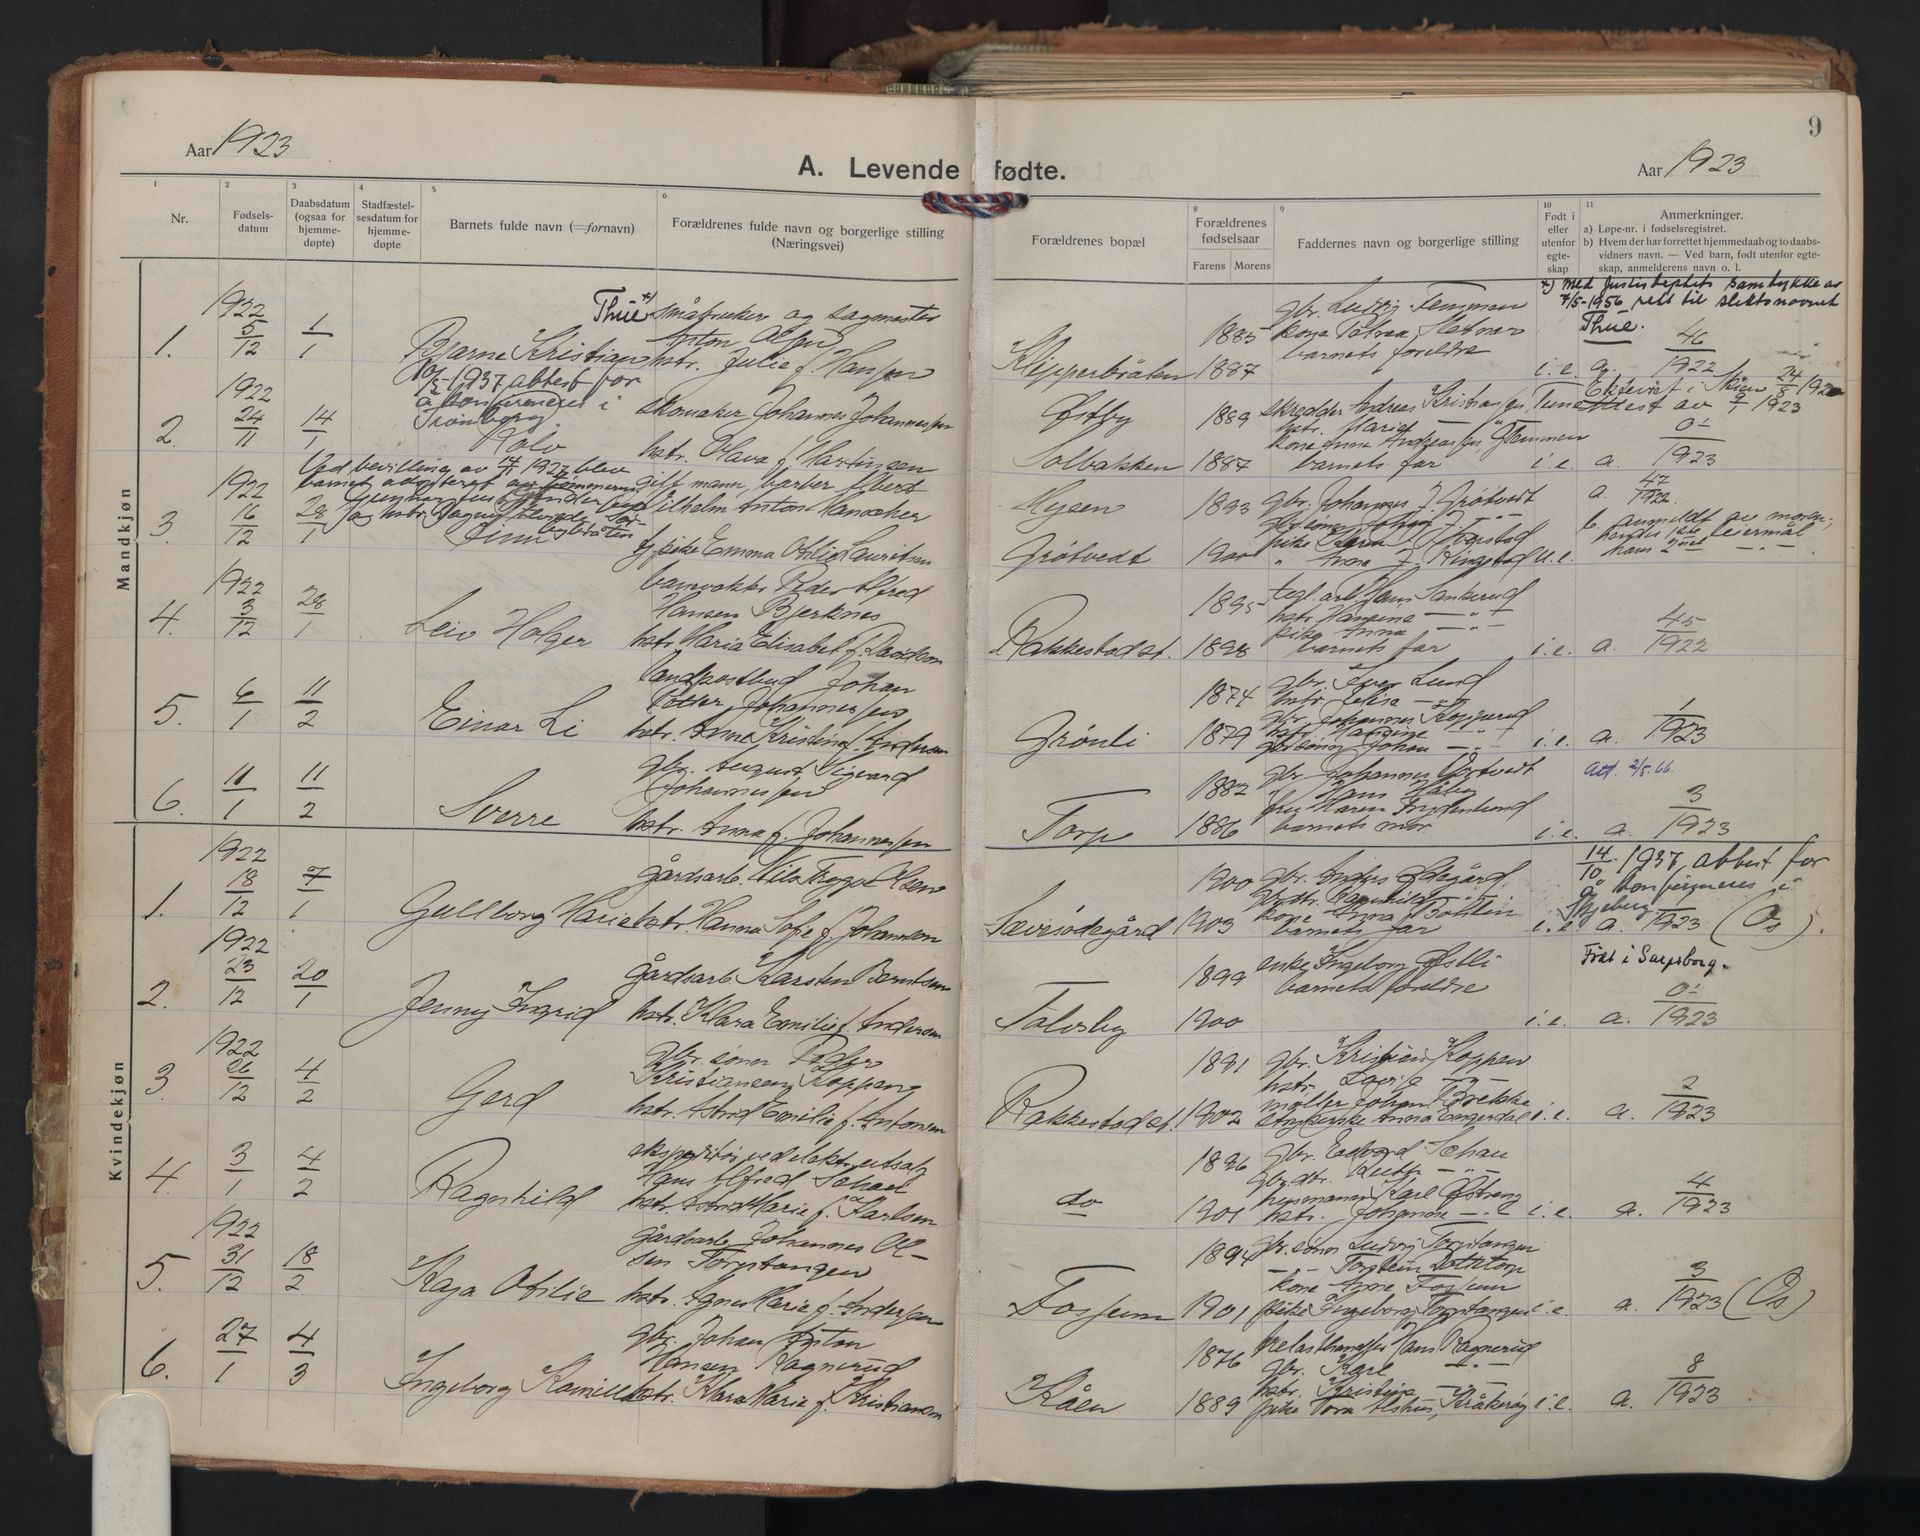 9
Aar 1923
A. Levende fødte.
Aar 1923
1 2 3 4 5 6 8 9 10 11
Nr.
Fødsels-
datum
Daabsdatum
(ogsaa for
hjemme-
døpte)
Stadfæstel-
sesdatum for
hjemme-
døpte
Barnets fulde navn (=fornavn)
Forældrenes fulde navn og borgerlige stilling
(Næringsvei)
Forældrenes bopæl
Forældrenes
fødselsaar
Farens Morens
Faddernes navn og borgerlige stilling
Født i
eller
utenfor
egte-
skap
Anmerkninger.
a) Løpe-nr. i fødselsregistret.
b) Hvem der har forrettet hjemmedaab og to daabs-
vidners navn. — Ved barn, født utenfor egte-
skap, anmelderens navn o. l.
Mandkjøn
1. 1922 5/12 1/1
Bjarne Kristian
Thue +)
småbruker og sagmester
Anton Olsen
hstr. Julie f. Hansen
Klypperbråten
1885
1887
gbr. Ludvig Temman
kone
barnets foreldre
i.e.
+) Med Justisdeptets samtykke av
7/5-1956 rett til slektsnavnet
Thue.
a. 46/1922
2. 1922 24/11 14/1
10/5-1937, attest for
å konfirmeres i
Kolo
skomaker Johannes Johannessen
hstr. Hava f. Martinsen
Østby
Solbakken
1889
1887
skredder Andreas Kristiansen
hstr. Marie
kone Anna Andreassen, Glemmen
barnets far
i.e.
attest av 3/1 1923
a. 01/1923
3. 1922 16/12 28/1
Ved bevilling av 14/1 1927 blev
barnet adoptert av
Finn
gift mann, barber Albert
Vilhelm Anton
pike Emma Otilie Lauritsen
Mysen
Grøtvedt
1893
1900
gbr. Johannes J. Grøtvedt
u.e.
a. 47/1922
b. anmeldt av moren,
hendes 1ste leiermål
hans 2net
4. 1922 3/12 28/1
Leiv Holger
banevokter Peder Alfred
Hansen Bjerknes
hstr. Maria Elisabet f. Davidson
Rakkestad st.
1895
1898
tegl. arb. Hans Sankerud
hstr. Hansine
pike Anna
barnets far
i.e.
a. 45/1922
5. 6/1 11/2
Einar Li
landpostbud Johan
Johannessen
hstr. Anne Kristine f. Andersen
Grønli
1874
1879
gbr. Iver Lund
hstr.
gbr. Johannes Kopperud
hstr. Hansine
gbr. sønn Johan
i.e.
a. 1/1923
6. 11/1 11/2
Sverre
gbr. August Sigvard
Johannessen
hstr. Anna f. Johannessen
Torp
1882
1886
gbr. Johannes Grøtvedt
Hans Håby
fru Maren Frydenlund
barnets mor.
i.e.
att. 2/5.66.
a. 3/1923
Kvindekjøn
1. 1922 18/12 7/1
Gullborg Marie
gårdsarb. Nils Trygve Olsen
hstr. Hanna Sofie f. Johannson
Sævisødegård
1900
1903
gbr. Anders Ødegård
gbr.dtr. Ragnhild
kone Anna
barnets far
i.e.
14/10 1937, attest for
å konfirmeres i
Skjeberg
a. 1/1923 (Os).
2. 1922 23/12 20/1
Jenny Ingrid
gårdsarb. Karsten Berntsen
hstr. Klara Emilie f. Andersen
Tolvsby
1899
1900
enke Ingeborg Østli
barnets foreldre
i.e.
Født i Sarpsborg.
a. 01/1923
3. 1922 26/12 4/2
Gerd
gbr. sønn Peder
Kristiansen Koppeng
hstr. Astrid Emilie f. Antonsen
Rakkestad st.
1891
1902
gbr. Kristian Koppen
hstr. Lovise
møller Johan Brekke
strykerske Anna Engerdal
i.e.
a. 2/1923
4. 3/1 4/2
Ragnhild
ekspeditør ved elektr. utsalg
Hans Alfred Schau
hstr. Astrid Marie f. Karlsen
do
1896
1901
gbr. Edvard Schau
gbr.dtr. Ruth
husmann Karl Østreng
hstr. Johanne
i.e.
a. 4/1923
5. 1922 31/12 18/2
Kaja Otilie
gårdsarb. Johannes Ol-
sen Torpstangen
hstr. Agnes Marie f. Andersen
Fossum
1894
1901
gbr. sønn Ludvig Torpstangen
Torstein
kone Anne Fossum
pike Ingeborg Torpstangen
i.e.
a. 3/1923 (Os)
6. 27/1 4/3
Ingeborg Kamilla
gbr. Johan Anton
Hansen Ragnerud
hstr. Klara Marie f. Kristiansen
Kåen
1876
1889
Hans Ragnerud
gbr. Karl
hstr. Kristine
pike Tora Alshus, Kråkerøy
i.e.
a. 8/1923